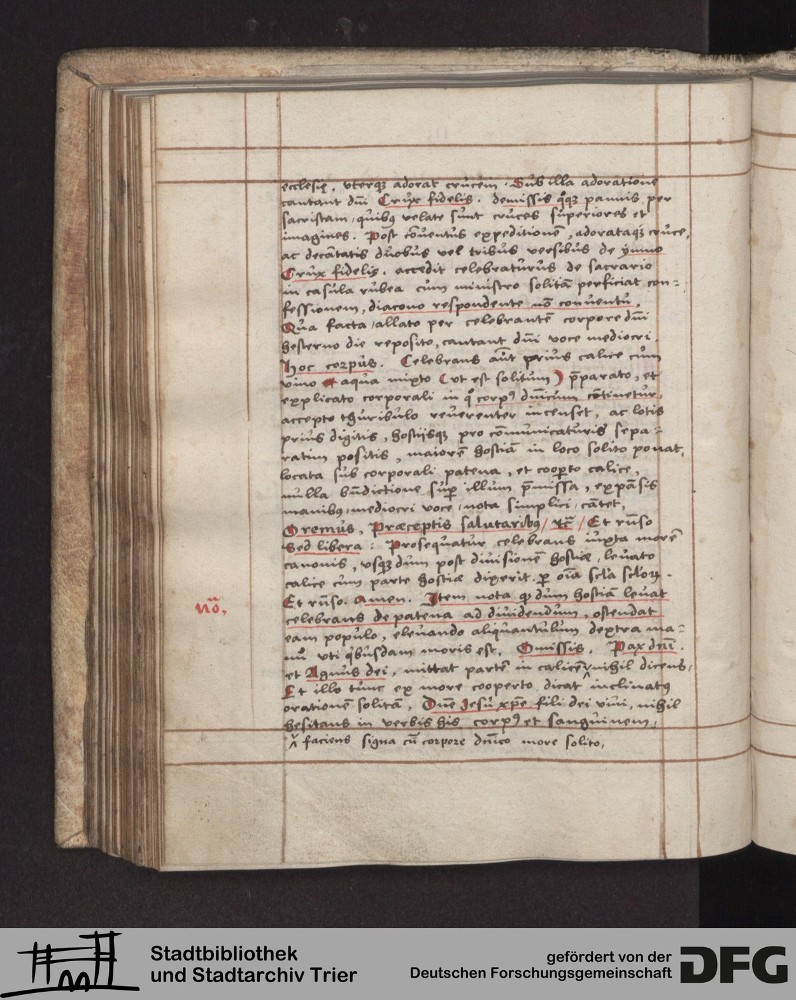 ecclesię, vterq; adorat crucem. Sub illa adoratione
cantant dñi Crux fidelis. demissis q̊q; pannis per
sacristam, quibꝰ velate sunt cruces superiores et
imagines. Post cōuentus expeditionē, adorataq; cruce,
ac decātatis duobus vel tribus versibus de ymno
Crux fidelis. accedit celebraturus de sacrario
in casula rubea cum ministro solitā perficiat con-
fessionem, diacono respondente nō conuentu.
Qua facta, allato per celebrantē corpore dñi
hesterno die reposito, cantant dñi voce mediocri.
Hoc corpus. Celebrans aūt prius calice cum
vino et aqua mixto (vt est solitum) p̄parato, et
explicato corporali in q̊ corpꝰ dñicum cōtinetur,
accepto thuribulo reuerenter incenset, ac lotis
prius digitis, hostijsq; pro cōmunicaturis sepa-
ratim positis, maiorem hostiā in loco solito ponat,
locata sub corporali patena, et cooperto calice,
nulla bñdictione super illum p̄missa, expāsis
manibꝰ, mediocri voce, nota simplici, cātet,
Oremus, Præceptis salutaribꝰ, &c̄ / Et rñso
Sed libera: Prosequatur celebrans iuxta morē
canonis, vsq; dum post diuisionē hostiæ, leuato
calice cum parte hostiæ dixerit. ꝑ oīa scl̄a scl̄oꝝ.
Et rñso. Amen. Item nota ꝙ dum hostiā leuat
Nō.
celebrans de patena ad diuidendum, ostendat
eam populo, eleuando aliquantulum dextra ma-
nu vti q̇busdam moris est. Omissis. Pax dn̄i.
et Agnus dei, mittat partē in calicē ^ nihil dicens,
Et illo tunc ex more cooperto dicat inclinatꝰ
orationem solitā, Dñe Jesu xp̄e fili dei viui, nihil
hesitans in verbis his corpꝰ et sanguinem,
^ faciens signa cū corpore dn̄ico more solito,
Stadtbibliothek
und Stadtarchiv Trier
gefördert von der
Deutschen Forschungsgemeinschaft
DFG